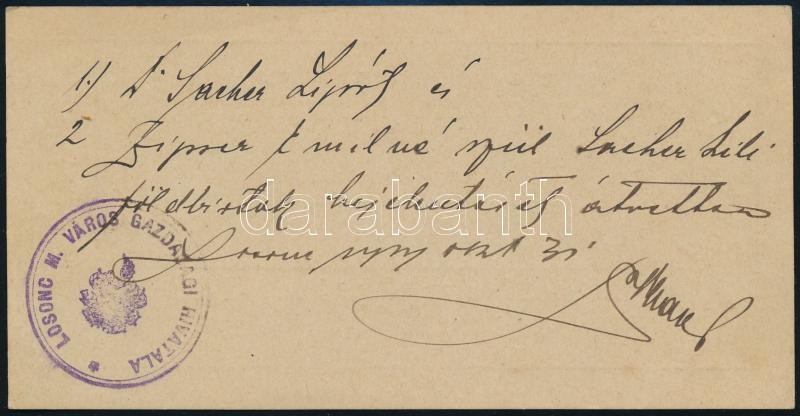 1.) Dr Sacher Lipót és
2 Zipser Emilné szül Sacher Lili
földbirtok bejelentését átvettem
Losonc okt 31
LOSONC M. VÁROS GAZDASÁGI HIVATALA
darabanth